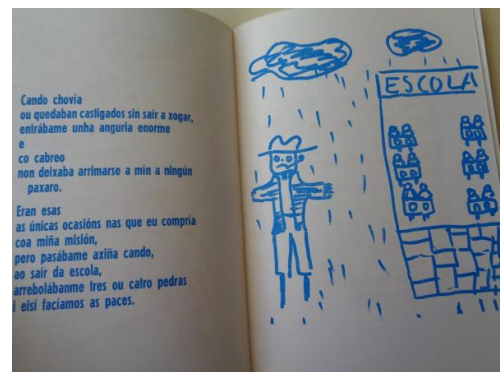 Cando chovía
ou quedaban castigados sin sair a xogar,
entrábame unha anguria enorme
e
co cabreo
non deixaba arrimarse a min a ningún
paxaro.
Eran esas
as únicas ocasións nas que eu compría
coa miña misión,
pero pasábame axiña cando,
ao saír da escola,
arrebolábanme tres ou catro pedras
i eisí facíamos as paces.
ESCOLA